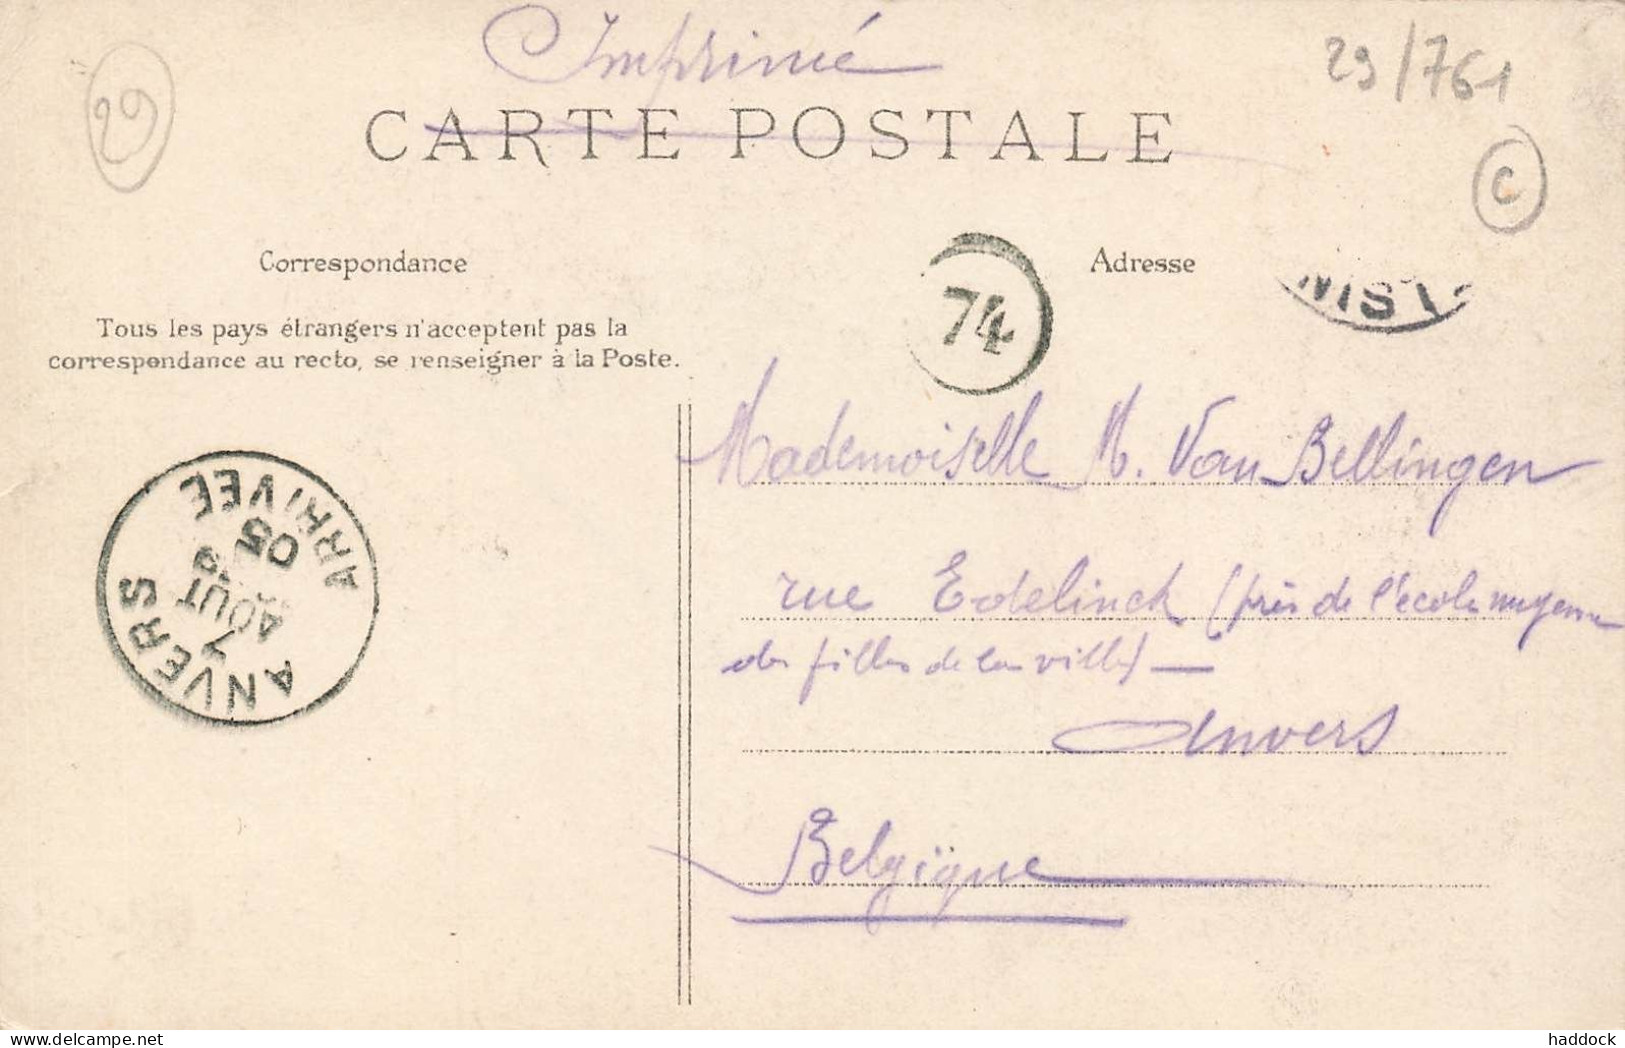 Imprimé
29
29/761
CARTE POSTALE
C
Correspondance
Adresse
Tous les pays étrangers n'acceptent pas la
correspondance au recto, se renseigner à la Poste.
74
ANVERS
ARRIVEE
7
AOUT
05
Mademoiselle M. Van Bellingen
rue Edelinck (près de l'école moyenne
de filles de la ville) —
Anvers
Belgique
haddock